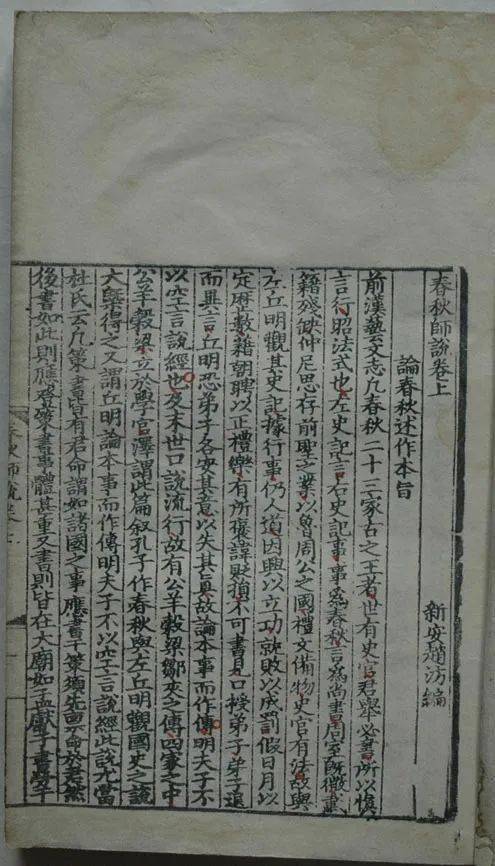 春秋師說卷上
新安趙汸編
論春秋述作本旨
前漢藝文志凡春秋二十三家古之王者世有史官君舉必書所以慎
言行昭法式也左史記言右史記事事爲春秋言爲尚書周室既微載
籍殘缺仲尼思存前聖之業以魯周公之國禮文備物史官有法故與
左丘明觀其史記據行事仍人道因興以立功就敗以成罰假日月以
定歷數藉朝聘以正禮樂有所褒諱貶損不可書見口授弟子弟子退
而異言丘明恐弟子各安其意以失其真故論本事而作傳明夫子不
以空言說經也及末世口說流行故有公羊穀梁鄒夾之傳四家之中
公羊穀梁立於學官澤謂此篇叙孔子作春秋與左丘明觀國史之說
大槩得之又謂丘明論本事而作傳明夫子不以空言說經此說尤當
杜氏云凡策書皆有君命謂如諸國之事應書于策須先稟命於君然
後書如此則應登策書事體甚重又書則皆在大廟如孟獻子書勞于
春秋師說